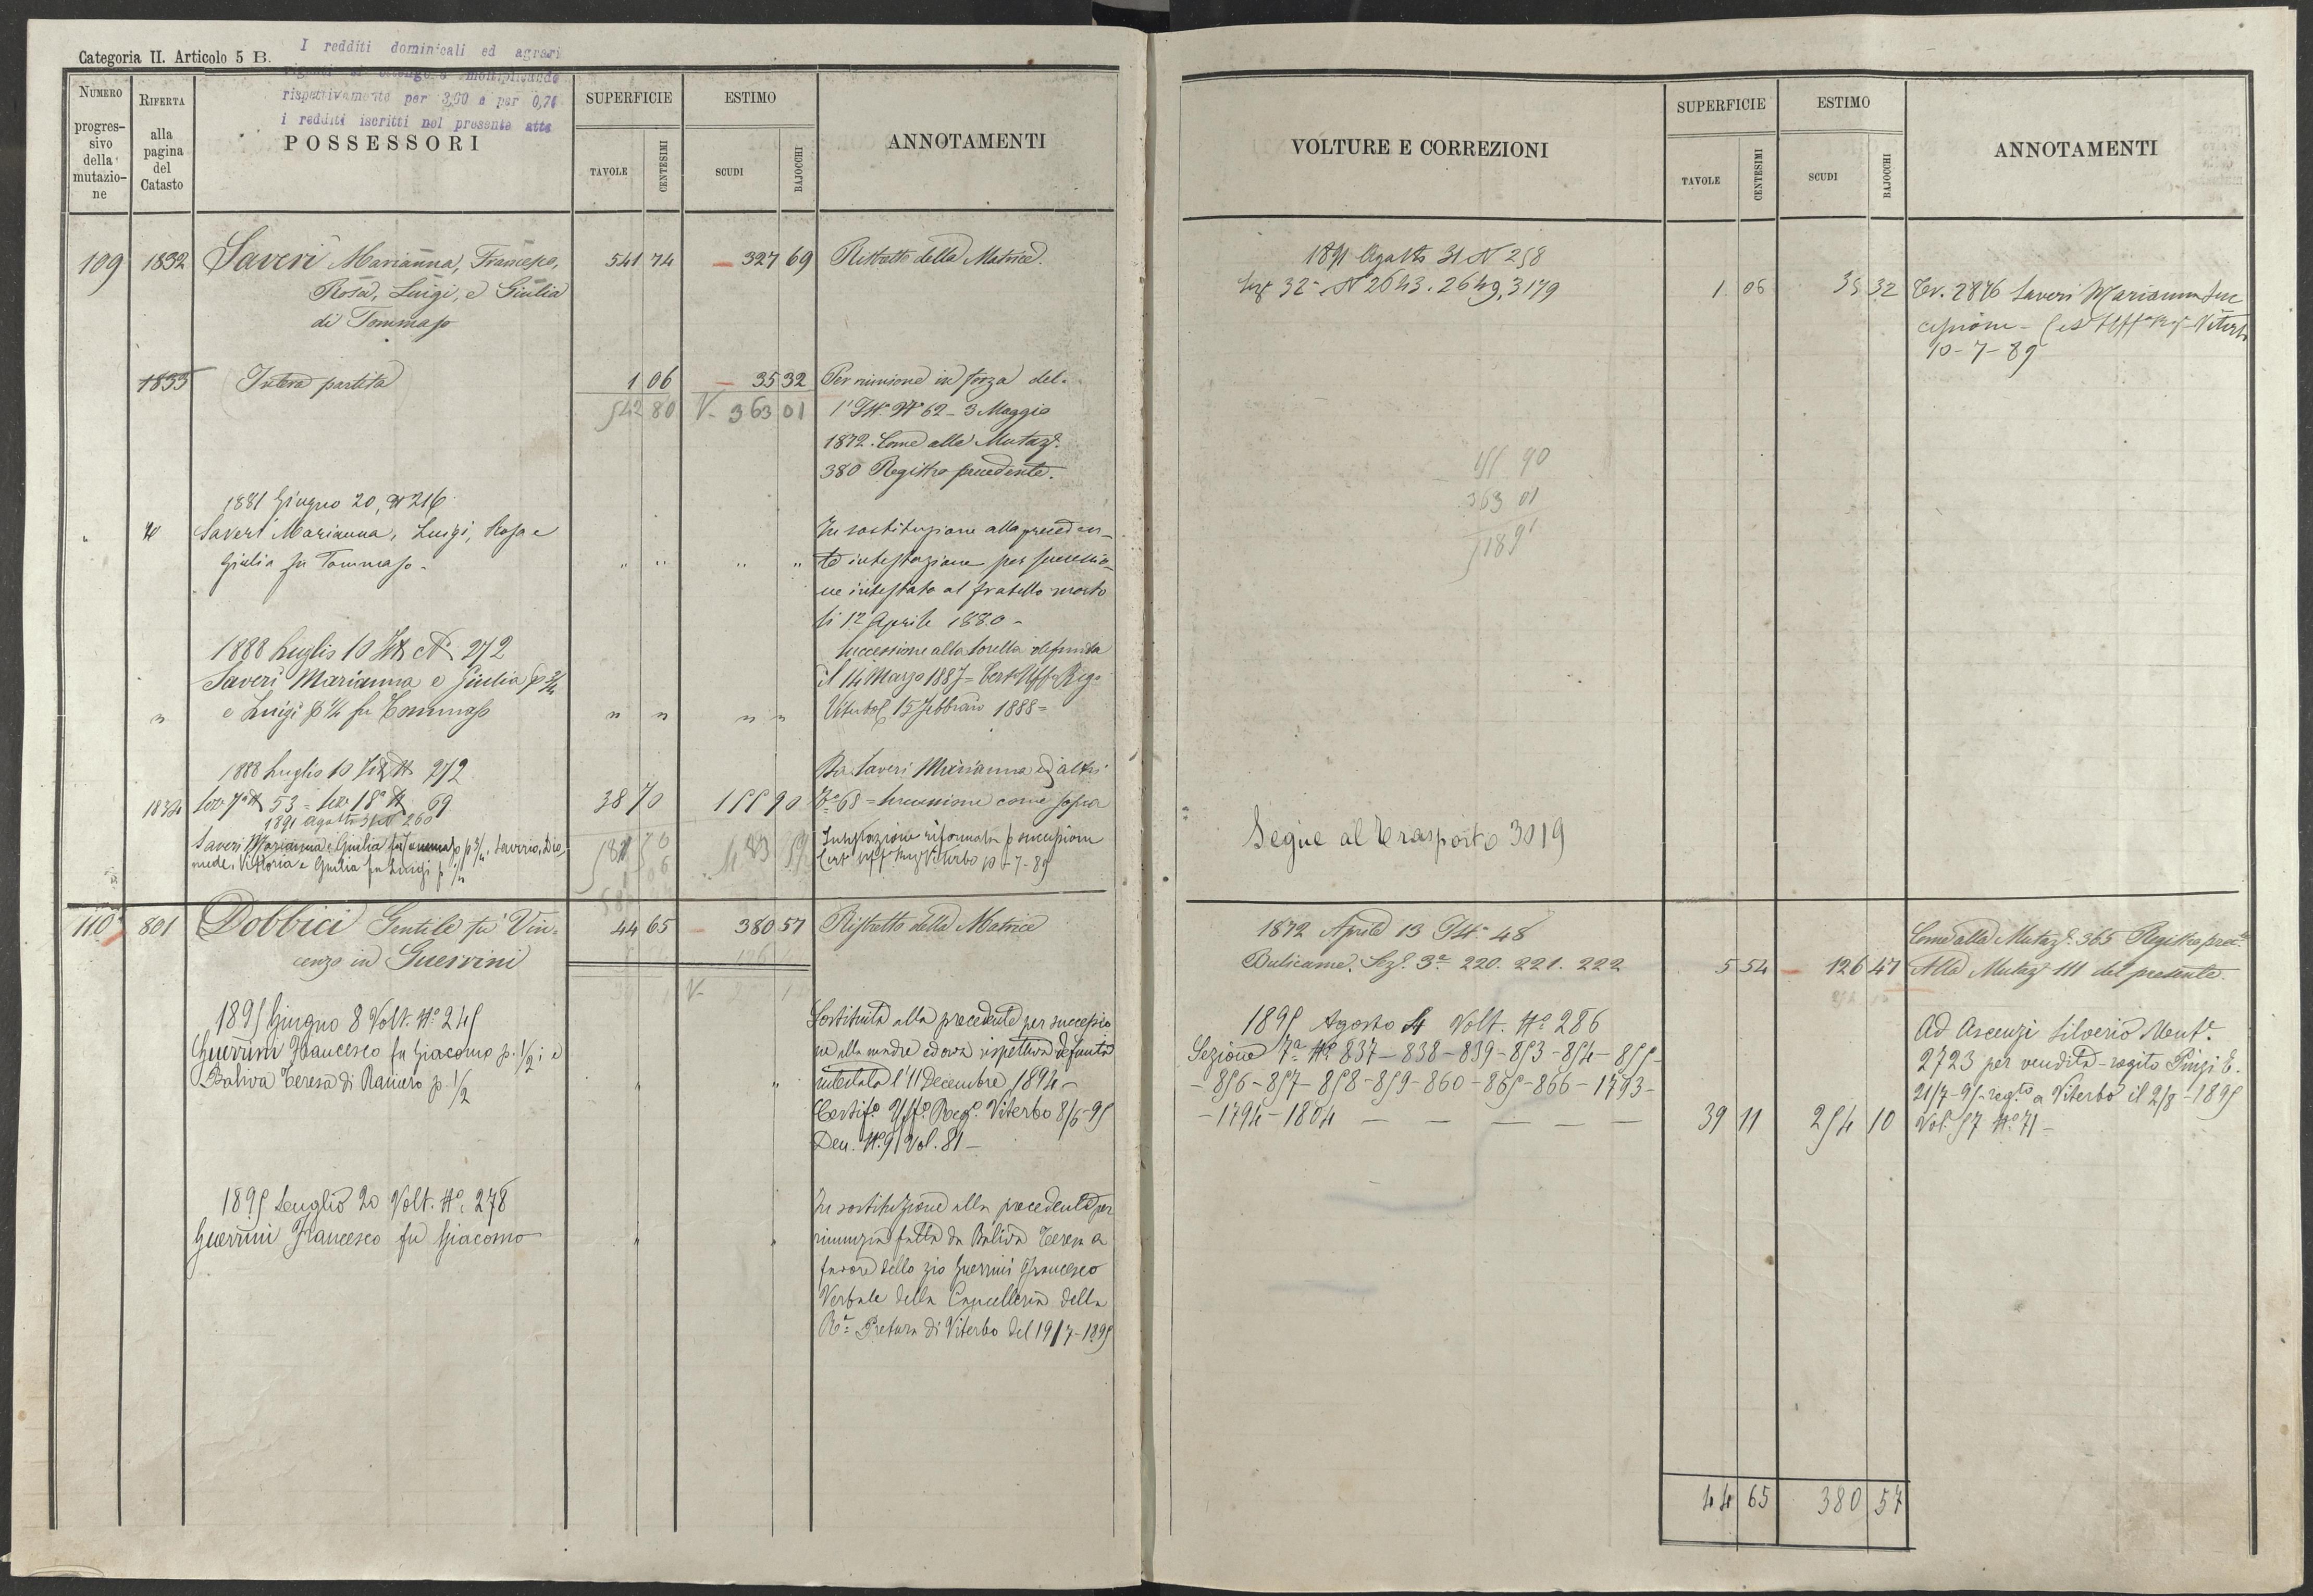 Categoria II. Articolo 5 B.
I redditi dominicali ed agrari
vigenti si ottengono moltiplicando
rispettivamente per 3,60 e per 0,74
i redditi iscritti nel presente atto
NUMERO progressivo della mutazione
RIFERTA alla pagina del Catasto
POSSESSORI
SUPERFICIE
TAVOLE
CENTESIMI
ESTIMO
SCUDI
BAJOCCHI
ANNOTAMENTI
109 1832 Saveri Marianna, Francesco, 541 74 327 69 Ristretto della Matrice
Rosa, Luigi, e Giulia
di Tommaso
1833 Intera partita 1 06 35 32 Per riunione in forza del-
542 80 V- 363 01 l'Ist. N° 62 - 3 Maggio
1872. Come alla Mutaz.e
380 Registro precedente.
1881 Giugno 20, N 216
Saveri Marianna, Luigi, Rosa e In sostituzione alla preceden-
Giulia fu Tommaso - " " " " te intestazione per successio-
ne intestata al fratello morto
li 12 Aprile 1880 -
1888 Luglio 10 N° 272 Successione alla sorella defunta
Saveri Marianna e Giulia p 3/4 il 14 Marzo 1887 = Cert. Uff. Reg.
" " e Luigi p 1/4 fu Tommaso " " " " Viterbo 15 Febbraio 1888 =
1888 Luglio 10 N 272 Da Saveri Marianna ed altri
1834 Sez 7a N 53 = Sez 18a N 69 38 70 155 90 68 = Successione come sopra
1891 Agosto 31 N 260
Saveri Marianna e Giulia fu Tommaso p 3/4, Saverio, Dio- Intestazione riformata p successione
mede, Vittoria e Giulia fu Luigi p 1/4 Cert Uff Reg Viterbo 10-7-89
110 801 Dobbici Gentile fu Vin- 44 65 380 57 Ristretto della Matrice
cenzo in Guerrini
1895 Giugno 8 Volt. N° 245 Sostituita alla precedente per successio-
Guerrini Francesco fu Giacomo p. 1/2 e ne alla madre ed ava rispettiva defunta
Baliva Teresa di Raniero p. 1/2 " " intestata l'11 Decembre 1894 -
Certif.o Uff.o Reg.o Viterbo 8/6-95
Den. N° 91 Vol. 81 -
1895 Luglio 20 Volt. N° 278 In sostituzione alla precedente per
Guerrini Francesco fu Giacomo " " rinunzia fatta da Baliva Teresa a
favore dello zio Guerrini Francesco
Verbale della Cancelleria della
R.a Pretura di Viterbo del 19/7-1895
VOLTURE E CORREZIONI
SUPERFICIE
TAVOLE
CENTESIMI
ESTIMO
SCUDI
BAJOCCHI
ANNOTAMENTI
1891 Agosto 31 N 258
Sez 32 - N 2643. 2649, 3179 1 06 35 32 Tr. 2876 Saveri Marianna Suc
cessione - Cert Uff Reg Viterbo
10-7-89
155 90
363 01
Segue al Trasporto 3019
1872 Aprile 13 Ist. 48 Come alla Mutaz.e 365 Registro prec.te
Bulicame. Sez.e 3a 220. 221. 222 5 54 126 47 Alla Mutaz.e 111 del presente.
1895 Agosto 4 Volt. N° 286 Ad Ascenzi Silverio Mut.e
Sezione 7a N° 837 - 838 - 839 - 853 - 854 - 855 - 2723 per vendita - rogito Pinzi E.
- 856 - 857 - 858 - 859 - 860 - 865 - 866 - 1793 - 21/7-95 reg.to a Viterbo il 2/8-1895
- 1794 - 1804 — — — — — 39 11 254 10 Vol. 57 N° 71 -
44 65 380 57